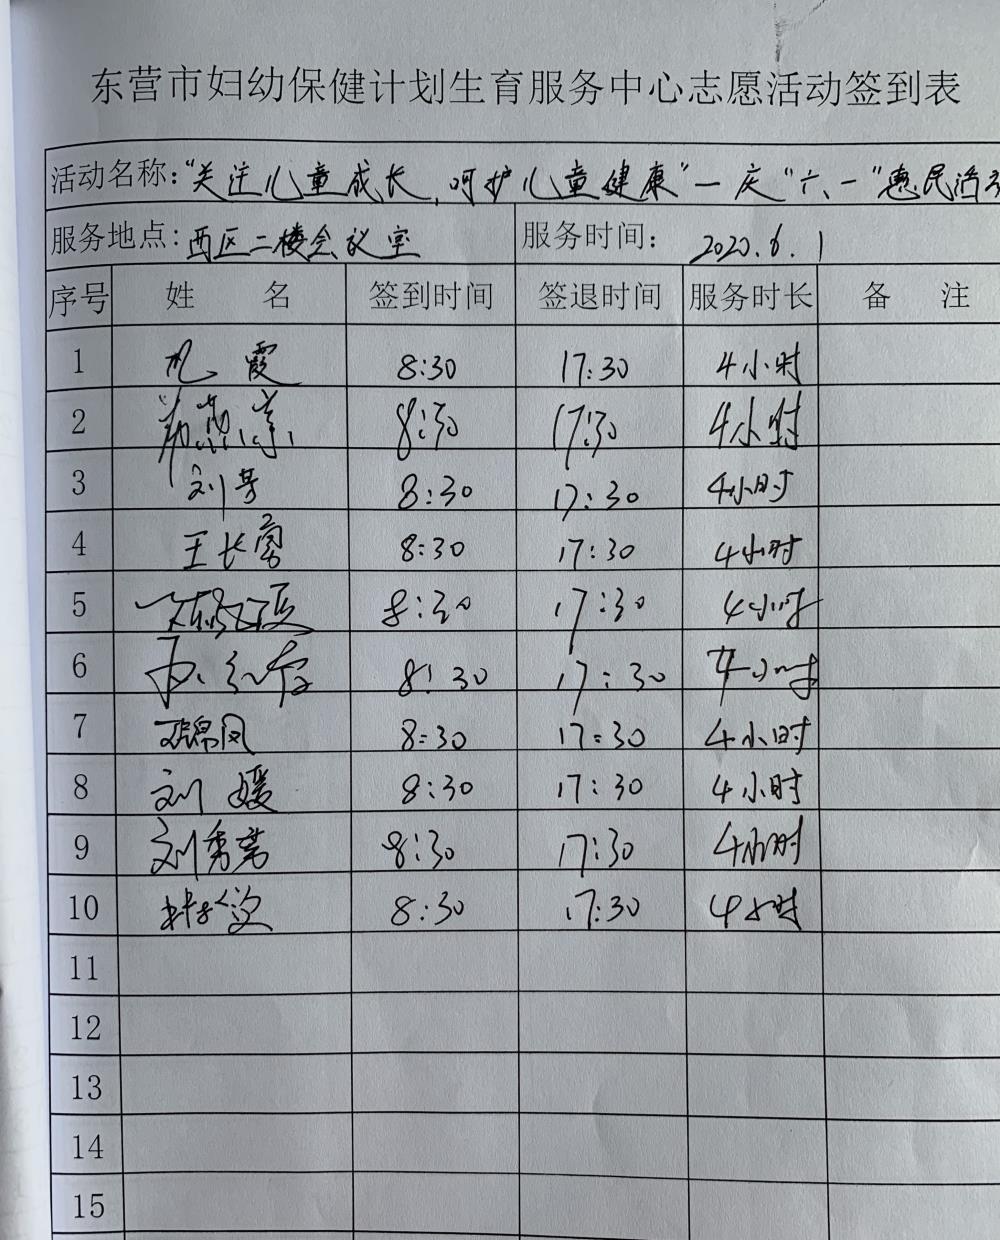 东营市妇幼保健计划生育服务中心志愿活动签到表
活动名称:"关注儿童成长,呵护儿童健康"一庆"六一"惠民活动
服务地点:西区二楼会议室 服务时间: 2020.6.1
序号 姓 名 签到时间 签退时间 服务时长 备 注
1 霞 8:30 17:30 4小时
2 8:30 17:30 4小时
3 刘芳 8:30 17:30 4小时
4 王长 8:30 17:30 4小时
5 8:30 17:30 4小时
6 8:30 17:30 4小时
7 锦凤 8:30 17:30 4小时
8 刘 媛 8:30 17:30 4小时
9 刘秀 8:30 17:30 4小时
10 8:30 17:30 4小时
11
12
13
14
15